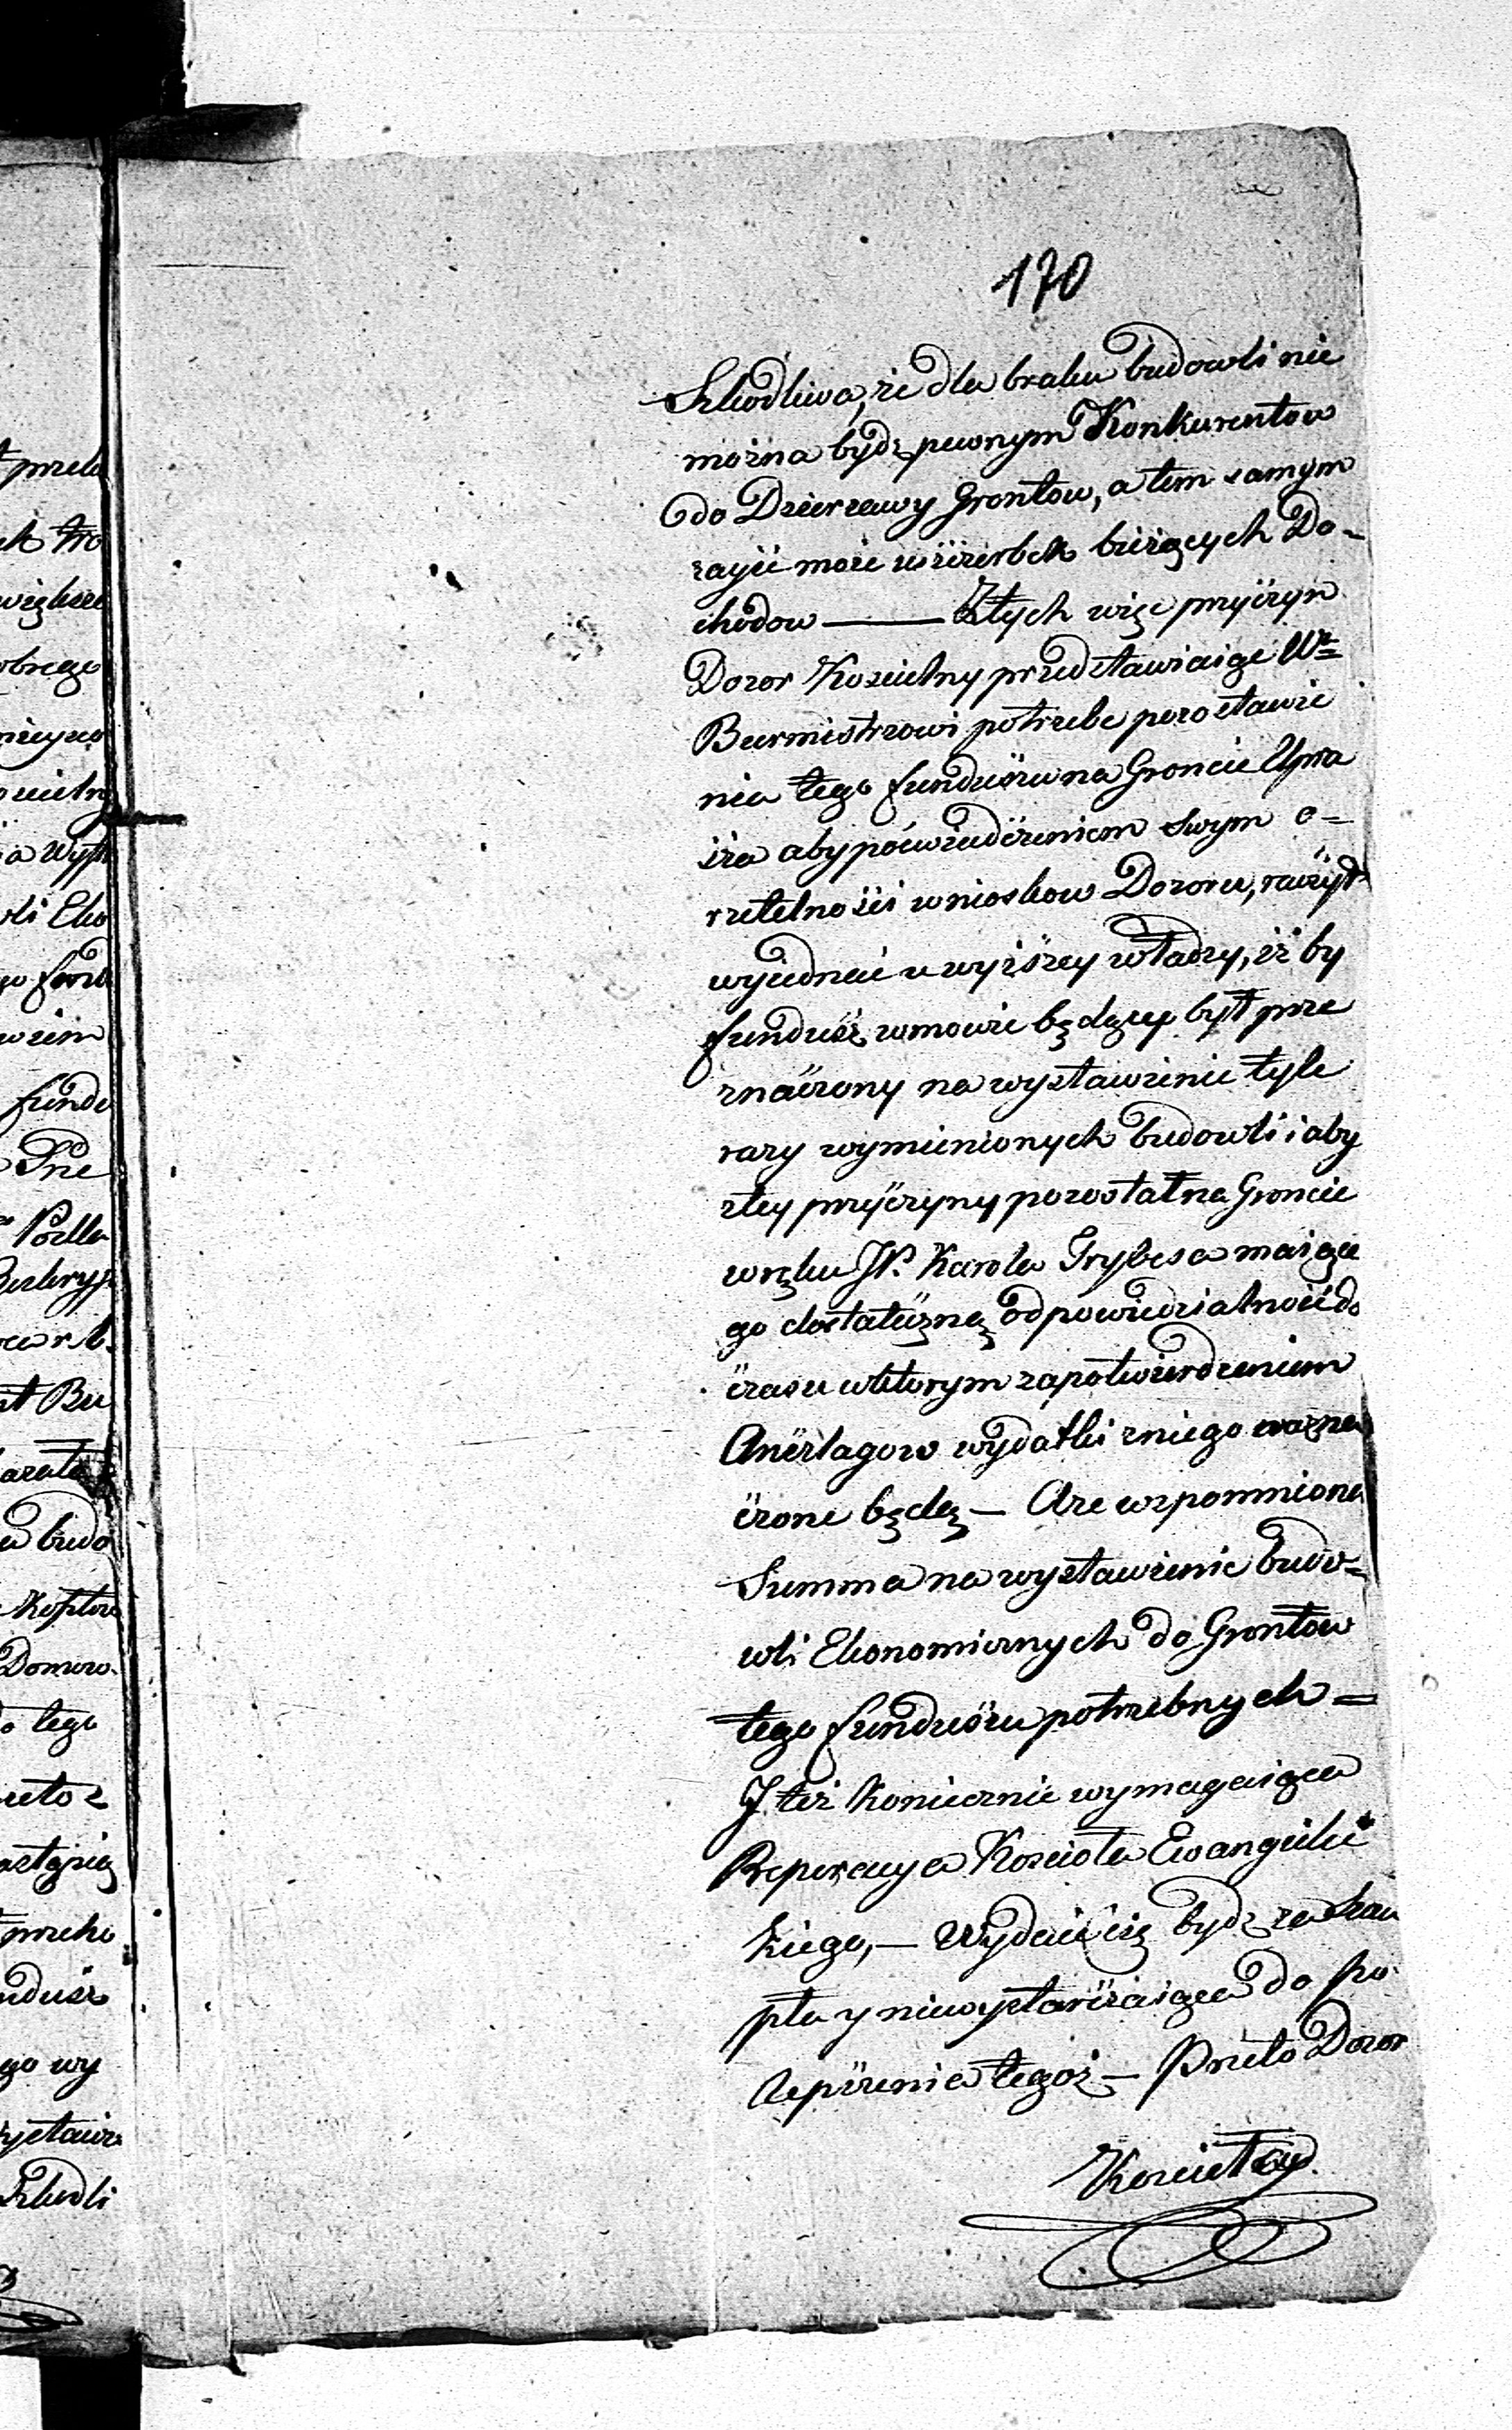 170
Szkodliwa, że dla braku budowli nie
można bydz pewnym Konkurentow
do Dzierzawy Grontow, a tem samym
zayść może uszczerbek bieżących Do-
chodow — Ztych więc przyczyn
Dozor Koscielny przedstawiaiąc Wu
Burmistrzowi potrzebe pozostawie
nia tego funduszu na Groncie Upra
sza aby poświadczeniem swym o=
rzetelności wnioskow Dozoru, raczył
wyiednać u wyższey władzy, iż by
fundusz wmowie będący był prze
znaczony na wystawienie tyle
razy wymienionych budowli i aby
ztey przyczyny pozostał na Groncie
wręku JP. Karola Grybesa maiące
go dostateczną odpowiedzialność do
czasu wktorym zapotwierdzeniem
Anszlagow wydatki zniego
czone będą — Aze wzpomniona
Summa na wystawienie budo=
wli Ekonomicznych do Grontow
tego funduszu potrzebnych =
J też Koniecznie wymagaiąca
Reperacya Kościoła Ewangelic
kiego, — Wydaie się bydz za szczu
pła y niewystarczaiąca do po
lepszenia tegoż — Przeto Dozor
Koscielny
przeło
obrego
Wyst
li Eko
fundu
Bu
budo
Domow
tego
przeto z
ndusz
go wy
ystawi
Szkodli